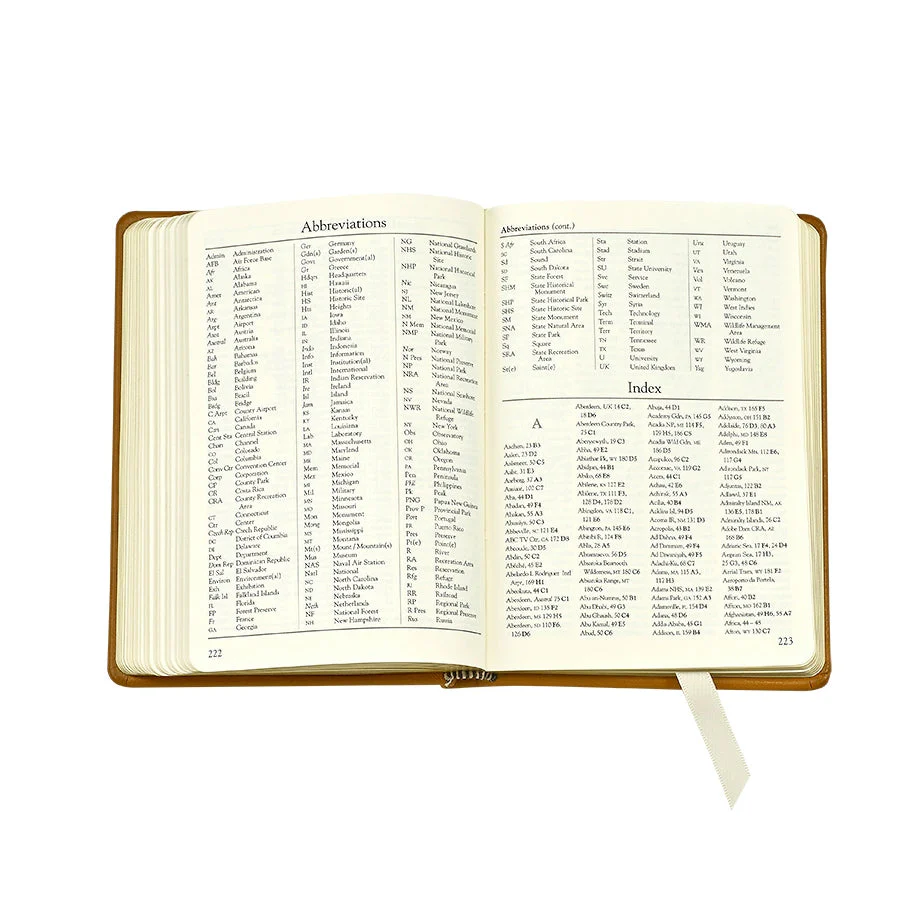 Abbreviations
Admin Administration
AFB Air Force Base
Afr Africa
AK Alaska
AL Alabama
Amer American
Ant Antarctica
AR Arkansas
Arg Argentina
Arpt Airport
Aust Austria
Austral Australia
AZ Arizona
Bah Bahamas
Bar Barbados
Bel Belgium
Bldg Building
Bol Bolivia
Bra Brazil
Brdg Bridge
C Arpt County Airport
CA California
Can Canada
Cent Sta Central Station
Chan Channel
CO Colorado
Col Columbia
Conv Ctr Convention Center
Corp Corporation
CP County Park
CR Costa Rica
CRA County Recreation
Area
CT Connecticut
Ctr Center
Czech Rep Czech Republic
DC District of Columbia
DE Delaware
Dept Department
Dom Rep Dominican Republic
El Sal El Salvador
Environ Environment(al)
Exh Exhibition
Falk Isl Falkland Islands
FL Florida
FP Forest Preserve
Fr France
GA Georgia
Ger Germany
Gdn(s) Garden(s)
Govt Government(al)
Gr Greece
Hdqrs Headquarters
HI Hawaii
Hist Historic(al)
HS Historic Site
Hts Heights
IA Iowa
ID Idaho
IL Illinois
IN Indiana
Indo Indonesia
Info Information
Inst Institution(al)
Intl International
IR Indian Reservation
Ire Ireland
Isl Island
Jam Jamaica
KS Kansas
KY Kentucky
LA Louisiana
Lab Laboratory
MA Massachusetts
MD Maryland
ME Maine
Mem Memorial
Mex Mexico
MI Michigan
Mil Military
MN Minnesota
MO Missouri
Mon Monument
Mong Mongolia
MS Mississippi
MT Montana
Mt(s) Mount / Mountain(s)
Mus Museum
NAS Naval Air Station
Natl National
NC North Carolina
ND North Dakota
NE Nebraska
Neth Netherlands
NF National Forest
NH New Hampshire
NG National Grasslands
NHS National Historic
Site
NHP National Historical
Park
Nic Nicaragua
NJ New Jersey
NL National Lakeshore
NM National Monument
NM New Mexico
N Mem National Memorial
NMP National Military
Park
Nor Norway
N Pres National Preserve
NP National Park
NRA National Recreation
Area
NS National Seashore
NV Nevada
NWR National Wildlife
Refuge
NY New York
Obs Observatory
OH Ohio
OK Oklahoma
OR Oregon
PA Pennsylvania
Pen Peninsula
Phil Philippines
Pk Peak
PNG Papua New Guinea
Prov P Provincial Park
Port Portugal
PR Puerto Rico
Pres Preserve
Pt(e) Point(e)
R River
RA Recreation Area
Res Reservation
Rfg Refuge
RI Rhode Island
RR Railroad
RP Regional Park
R Pres Regional Preserve
Rus Russia
222
Abbreviations (cont.)
S Afr South Africa
SC South Carolina
Sd Sound
SD South Dakota
SF State Forest
SHM State Historical
Monument
SHP State Historical Park
SHS State Historic Site
SM State Monument
SNA State Natural Area
SP State Park
Sq Square
SRA State Recreation
Area
St(e) Saint(e)
Sta Station
Stad Stadium
Str Strait
SU State University
Svc Service
Swe Sweden
Switz Switzerland
Syr Syria
Tech Technology
Term Terminal
Terr Territory
TN Tennessee
TX Texas
U University
UK United Kingdom
Uru Uruguay
UT Utah
VA Virginia
Ven Venezuela
Vol Volcano
VT Vermont
WA Washington
WI West Indies
WI Wisconsin
WMA Wildlife Management
Area
WR Wildlife Refuge
WV West Virginia
WY Wyoming
Yug Yugoslavia
Index
A
Aachen, 23 B3
Aalen, 23 D2
Aalsmeer, 50 C5
Aalst, 31 E3
Aarborg, 37 A3
Aba, 44 D1
Abadan, 49 F4
Abakan, 55 A3
Abbeville, SC 171 E4
ABC TV Ctr, CA 172 D8
Abcoude, 50 D5
Abéché, 45 E2
Abelardo L Rodriguez Intl
Arpt, 169 H1
Aberdeen, Austral 75 C1
Aberdeen, ID 135 F2
Aberdeen, MS 129 H5
Aberdeen, SD 110 F6,
126 D6
Aberdeen, UK 18 C2,
18 D6
Aberdeen County Park,
25 C1
Aberystwyth, 19 C3
Abha, 49 E2
Abiathar Pk, WY 180 D5
Abidjan, 44 B1
Abilene, KS 127 E2
Abilene, TX 111 F3,
128 D4, 176 D2
Abingdon, VA 118 C1,
121 E6
Absaroka Range, MT
180 C6
Abu Dhabi, 49 G3
Abu Ghaush, 50 C4
Abu Kamal, 49 E5
Abuja, 44 D1
Academy Gdn, PA 145 G5
Acadia NP, ME 114 F5,
129 H5, 186 C5
Acadia Wild Gdn, ME
186 D5
Acapulco, 96 C2
Accomac, VA 119 G2
Accra, 44 C1
Achinsk, 55 A3
Ad Dahna, 49 F4
Ad Dammam, 49 F4
Ad Dawadimi, 49 F3
Adams NHS, MA 139 E2
Adamsville, PA 154 D4
Adana, 45 D6
Addis Ababa, 45 G1
Addison, IL 159 B4
Addison, TX 165 F5
Addyston, OH 151 B2
Adelaide, 76 D3, 80 A3
Adelphi, MD 148 E8
Aden, 49 F1
Adirondack Mts, 112 E6,
117 G4
Adirondack Park, NY
117 G5
Adjuntas, 122 B2
Admiralty Island NM, AK
136 E5, 178 B1
Admiralty Islands, 76 C2
Adobe Dam CRA, AZ
168 B6
Adriatic Sea, 17 F4, 24 D4
Aegean Sea, 17 H3,
25 G3, 48 C6
Aeroporto da Portela,
38 B7
Affton, 40 D2
Affton, MO 162 B1
Afghanistan, 49 H6, 55 A7
Africa, 44 – 45
Afton, WY 130 C7
223